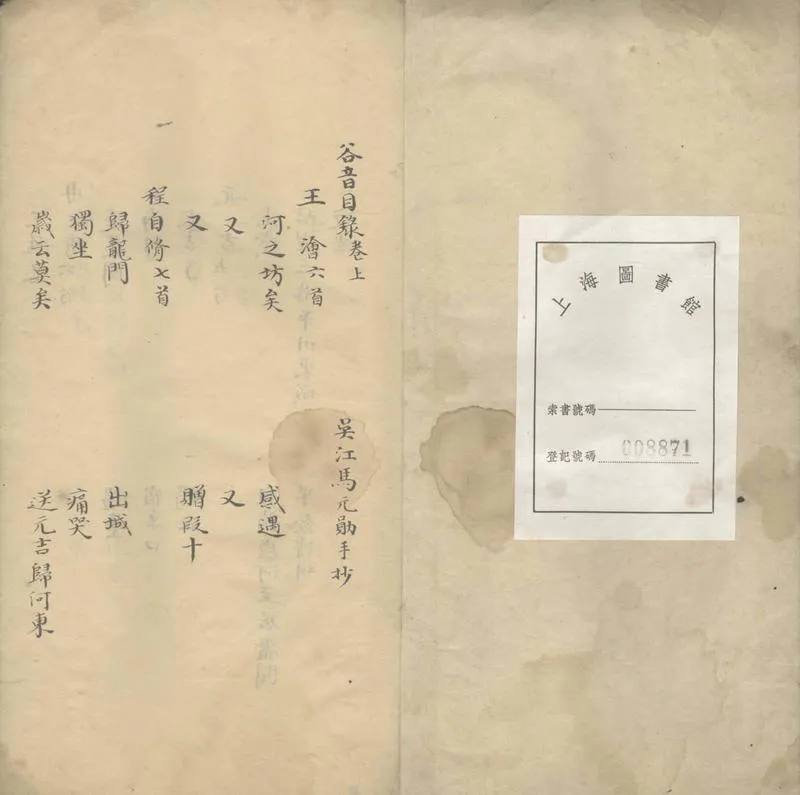 上海圖書館
索書號碼
登記號碼 008871
谷音目錄卷上
吳江馬元勛手抄
王澮六首
河之坊矣 感遇
又 又
又 贈段十
程自脩七首
歸龍門 出城
獨坐 痛哭
歲云莫矣 送元吉歸河東